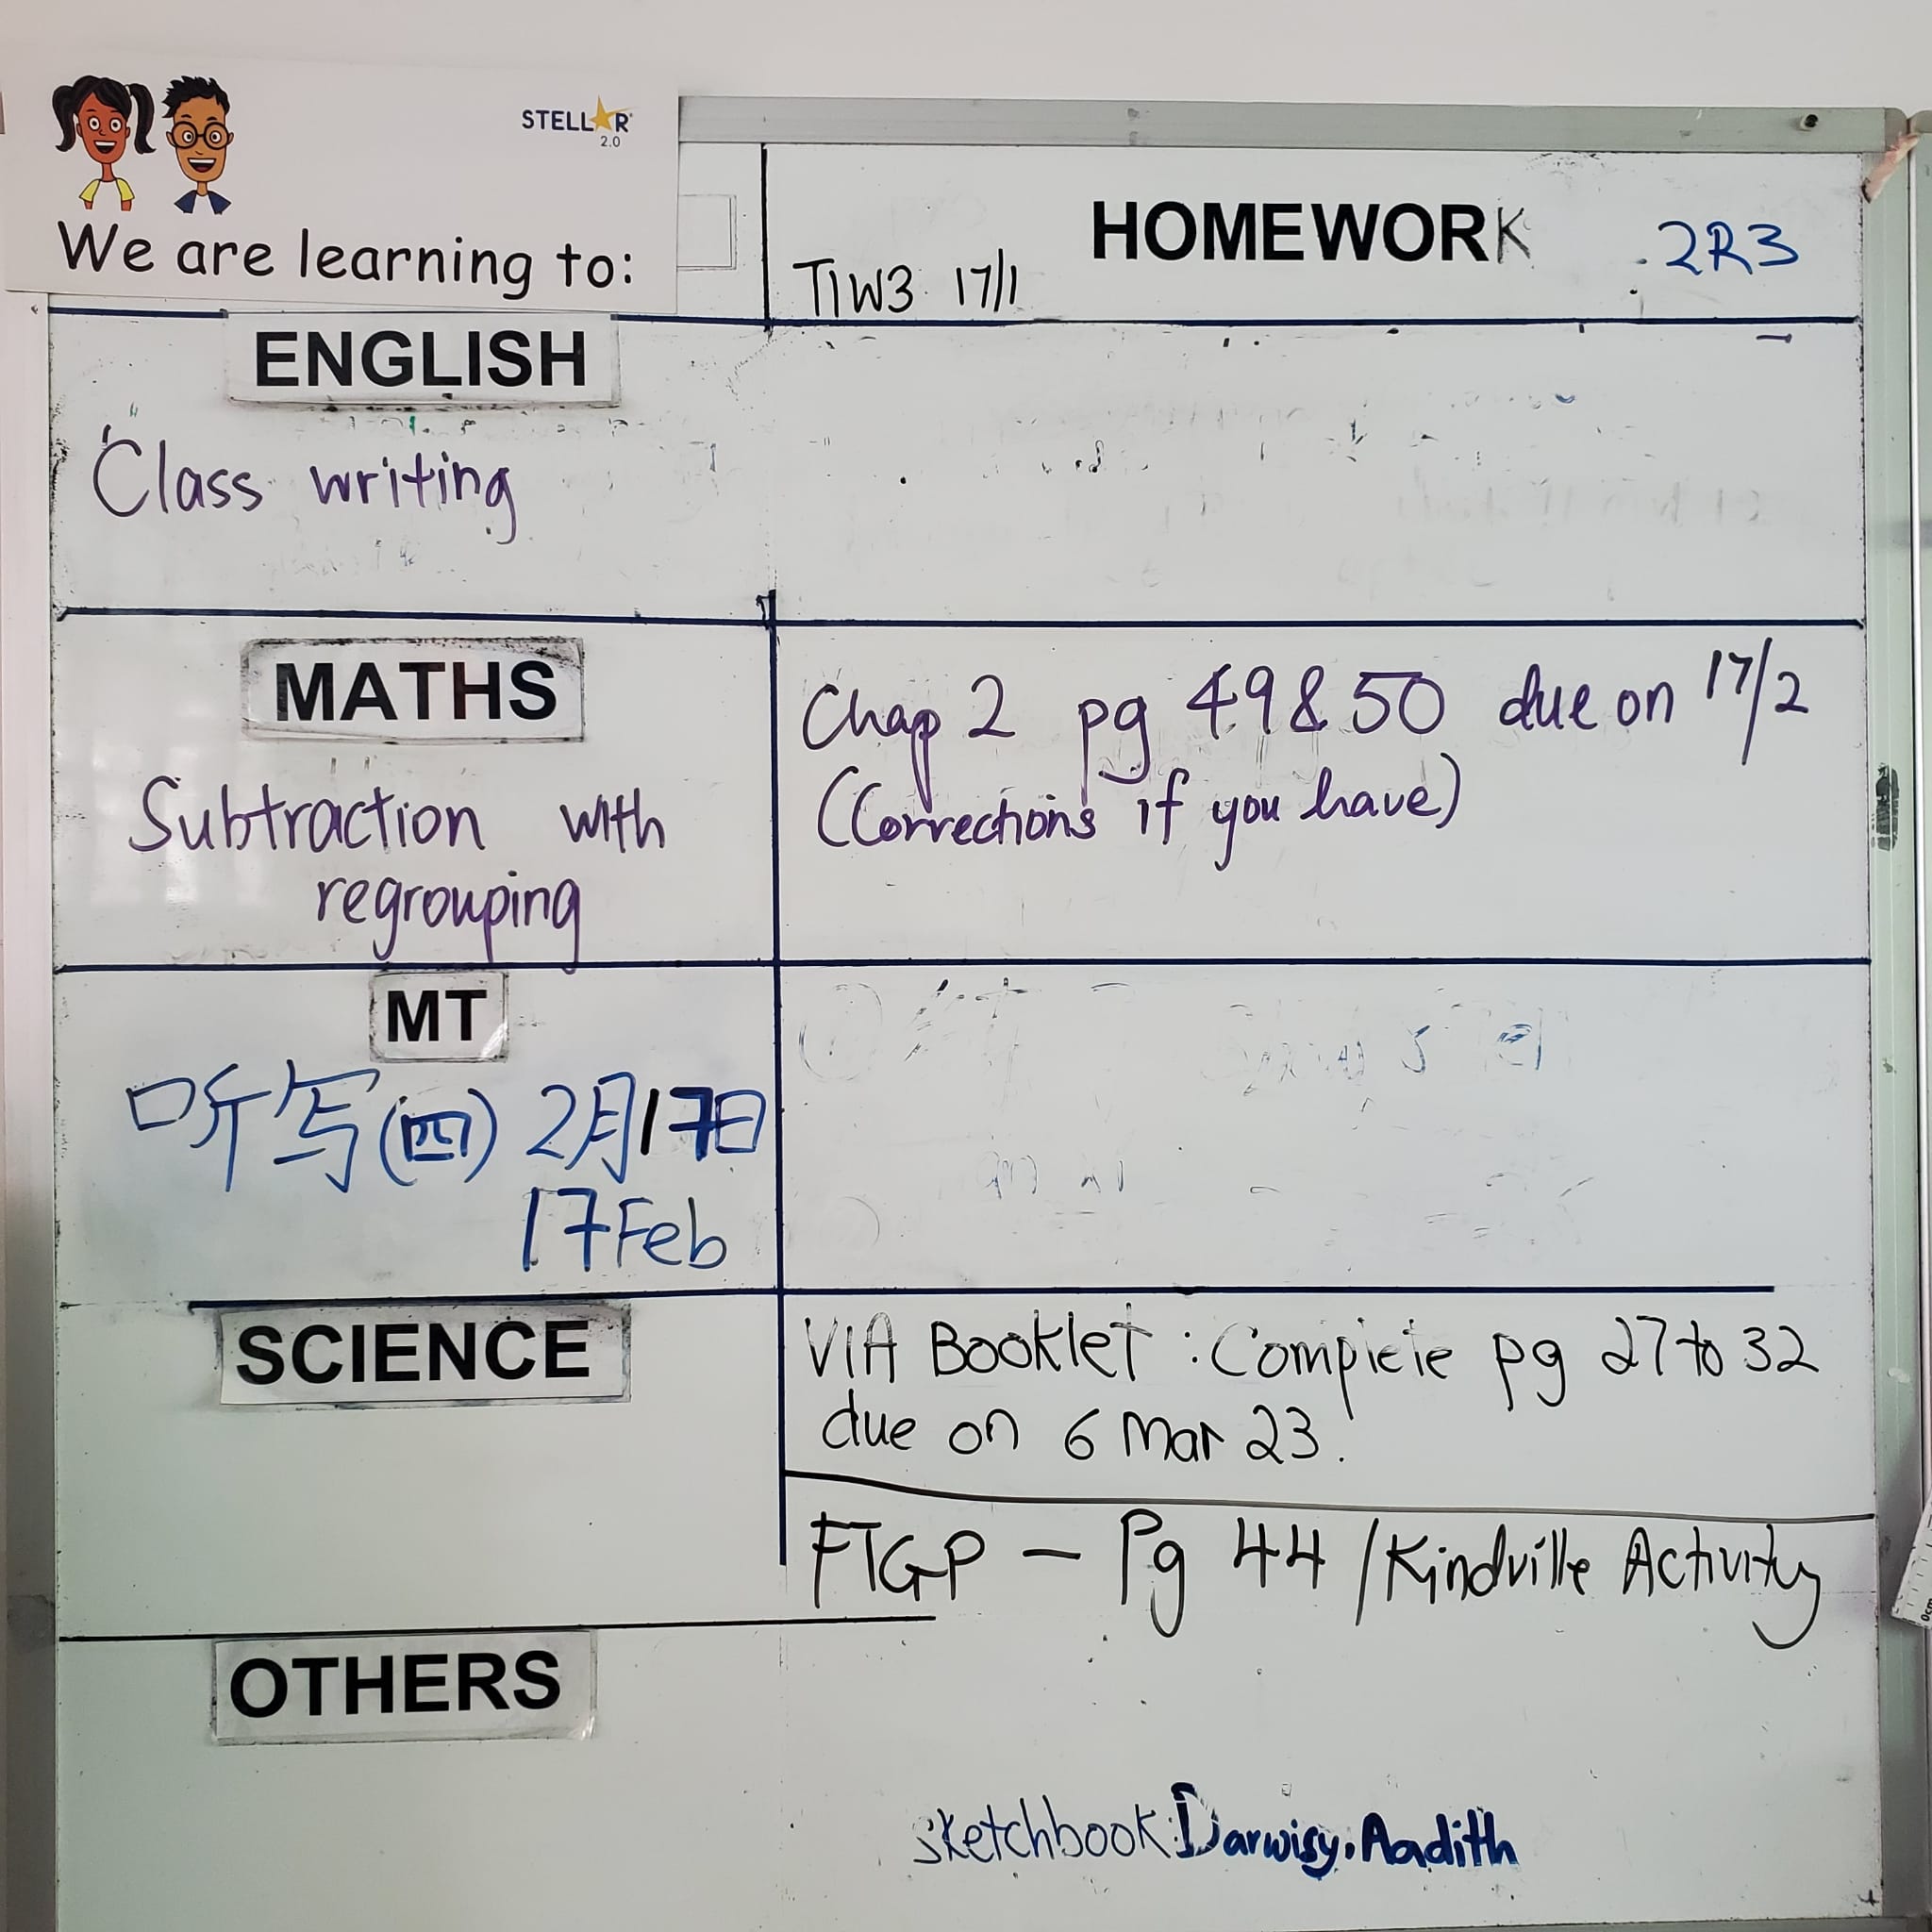 STELLAR
2.0
We are learning to:
HOMEWORK 2R3
T1W3 17/1
ENGLISH
Class writing
MATHS
Subtraction with
regrouping
Chap 2 pg 49 & 50 due on 17/2
(Corrections if you have)
MT
听写(四) 2月17日
17 Feb
SCIENCE
VIA Booklet : Complete pg 27 to 32
due on 6 Mar 23.
FTGP - Pg 44 / Kindville Activity
OTHERS
Sketchbook: Darwisy, Aadith
0cm